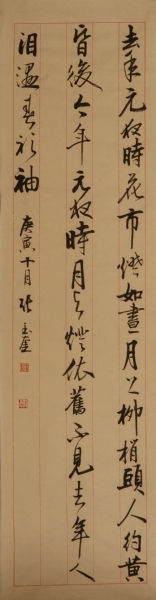 去年元夜時花市燈如晝月上柳梢頭人約黃
昏後今年元夜時月与燈依舊不見去年人
泪溼春衫袖
庚寅十月張玉奎